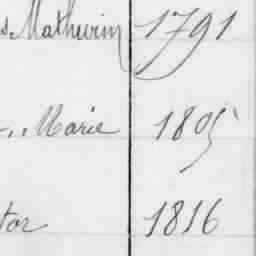 s Mathurin 1791
-. Marie 1805
tor 1816